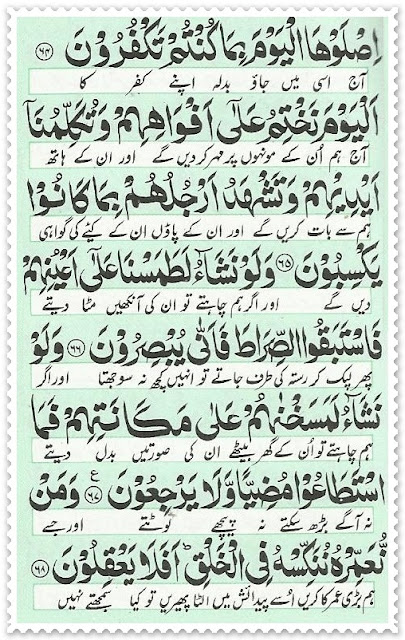 اِصْلَوْهَا الْيَوْمَ بِمَا كُنْتُمْ تَكْفُرُوْنَ ﴿۶۴﴾
آج اسی میں جاؤ بدلہ اپنے کفر کا
اَلْيَوْمَ نَخْتِمُ عَلٰۤى اَفْوَاهِهِمْ وَتُكَلِّمُنَاۤ
آج ہم اُن کے مونہوں پر مہر کر دیں گے اور ان کے ہاتھ
اَيْدِيْهِمْ وَتَشْهَدُ اَرْجُلُهُمْ بِمَا كَانُوْا
ہم سے بات کریں گے اور ان کے پاؤں ان کے کیئے کی گواہی
يَكْسِبُوْنَ ﴿۶۵﴾ وَلَوْ نَشَآءُ لَطَمَسْنَا عَلٰۤى اَعْيُنِهِمْ
دیں گے اور اگر ہم چاہتے تو ان کی آنکھیں مٹا دیتے
فَاسْتَبَقُوا الصِّرَاطَ فَاَنّٰى يُبْصِرُوْنَ ﴿۶۶﴾ وَلَوْ
پھر لپک کر رستہ کی طرف جاتے تو انہیں کچھ نہ سوجھتا اور اگر
نَشَآءُ لَمَسَخْنٰهُمْ عَلٰى مَكَانَتِهِمْ فَمَا
ہم چاہتے تو اُن کے گھر بیٹھے ان کی صورتیں بدل دیتے
اسْتَطَاعُوْا مُضِيًّا وَّلَا يَرْجِعُوْنَ ﴿۶۷﴾ ع وَمَنْ
نہ آگے بڑھ سکتے نہ پیچھے لوٹتے اور جسے
نُّعَمِّرْهُ نُنَكِّسْهُ فِى الْخَلْقِ ؕ اَفَلَا يَعْقِلُوْنَ ﴿۶۸﴾
ہم بڑی عمر کا کریں اُسے پیدائش میں الٹا پھیریں تو کیا سمجھتے نہیں